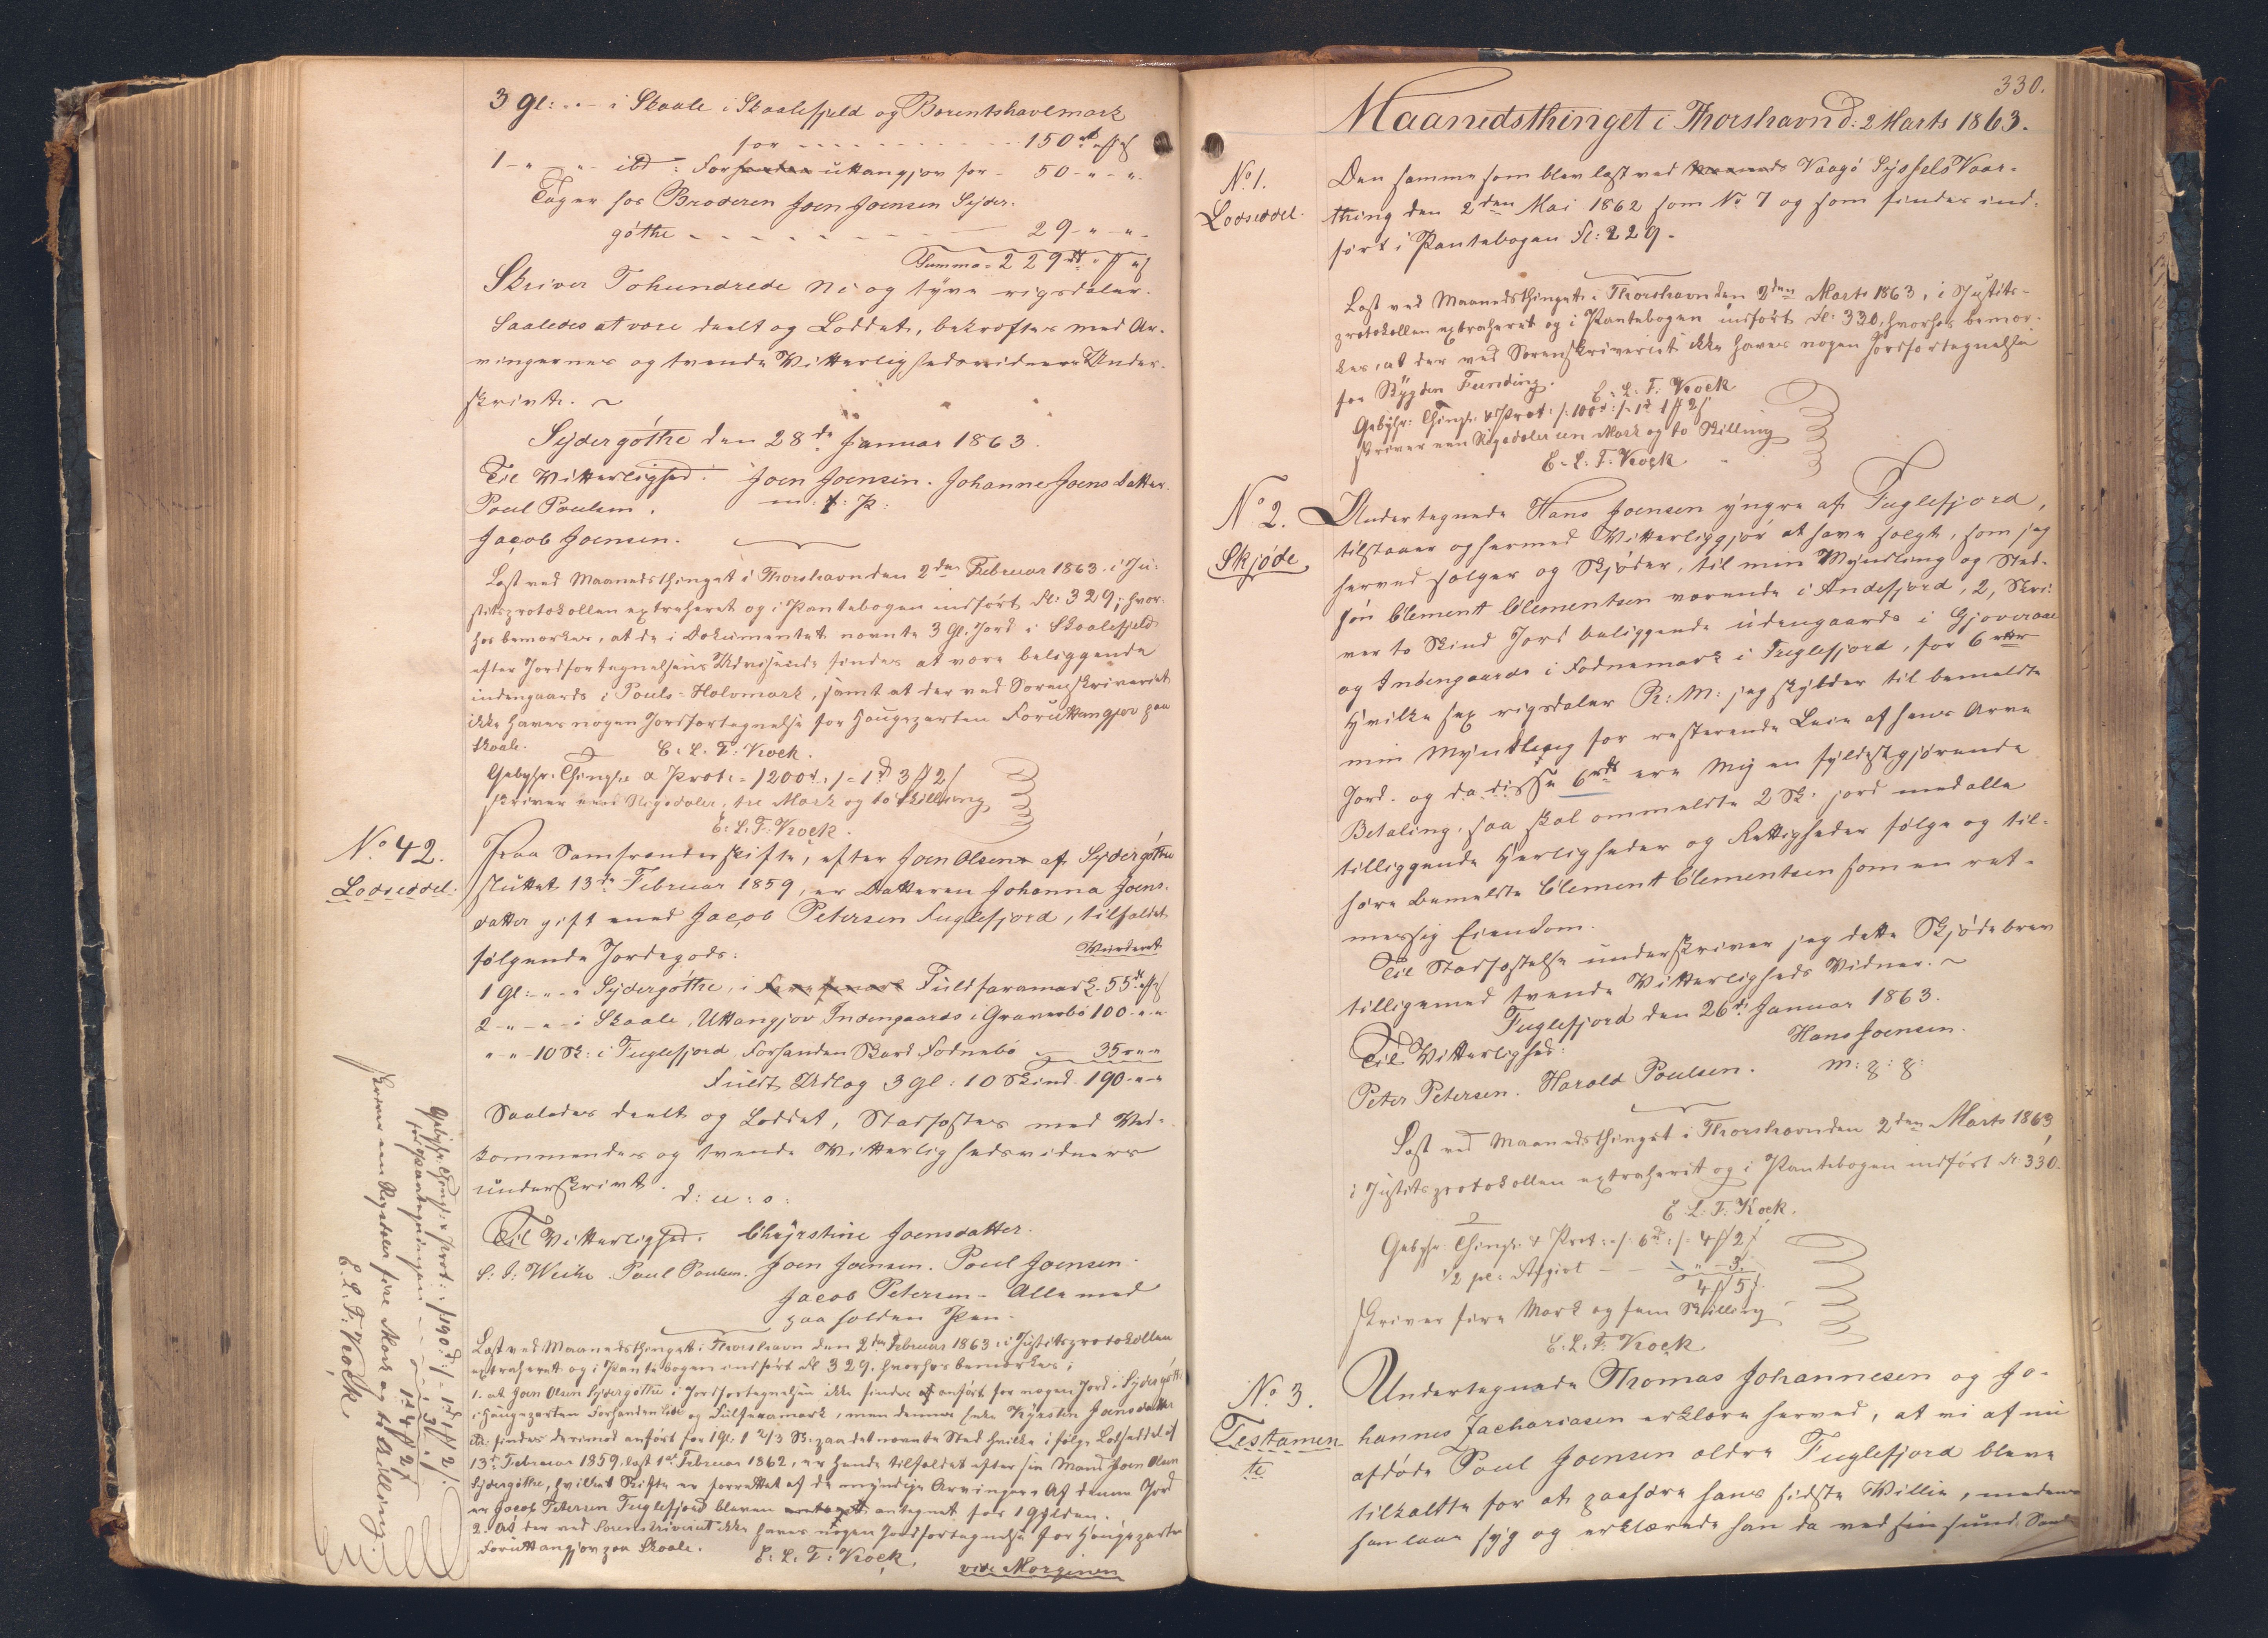 3 Gl: „ - i Skaale i Skaalefjeld og Borentshavlmark
for - - - - - - - 150 rd „ „
1 - „ - „ - ibd: Forhanden uttangjov for - 50 - „ - „ -
Tager hos Broderen Joen Joensen Sýder-
göthe - - - - - - - 29 - „ - „ -
Summa = 229 rd „ „
Skriver Tohundrede Ni og týve rigsdaler.
Saaledes at være deelt og Loddet, bekræftes med Ar-
vingernes og tvende Vitterlighedsvidners Under-
skrivt. ~
Sýdergöthe den 28de Januar 1863.
Til Vitterlighed: Joen Joensen. Johanne Joens datter.
Poul Poulsen. m: f: P:
Jacob Joensen.
Læst ved Maanedsthinget i Thorshavn den 2den Februar 1863. i Ju-
stitsprotokollen extraheret og i Pantebogen indført Fl: 329; hvor-
hos bemærkes, at de i Dokumentet nævnte 3 Gl. Jord i Skaalefjeld
efter Jordfortegnelsens Udvisende findes at være beliggende
indengaards i Pouls-Holvmark, samt at der ved Sorenskriveriet
ikke haves nogen Jordfortegnelse for Haugeparten Foruttangjov paa
Skaale. E: L: F: Kock.
Gebyhr: Thingl: & Prot: = /200 rd: /= 1 rd 3 ℳ 2 ſ
skriver een Rigsdaler, tre Mark og to Skilling
E: L: F: Kock.
No 42.
Lodseddel.
Paa Samfrænderskifte, efter Joen Olsen af Sýdergöthe
sluttet 13de Februar 1859, er Datteren Johanna Joens-
datter gift med Jacob Petersen Fuglefjord, tilfaldet
følgende Jordegods: Vurderet
1 Gl: - „ - i Sýdergöthe, i Fuldfaramark. 55 rd „ „
2 - „ - „ - i Skaale, Uttangjov Indengaards i Graverbö 100 - „ - „
„ - „ - 10 Sk: i Fuglefjord, Forhanden Skard Fodnebö 35 - „ - „
Fuldt Udlæg 3 Gl: 10 Skind. 190 - „ - „
Saaledes deelt og Loddet, Stadfæstes med Ved-
kommendes og tvende Vitterlighedsvidners
underskrivt. d: u: o:
Til Vitterlighed. Chrýrstine Joensdatter.
S: J: Weihe. Paul Poulsen. Joen Joensen. Poul Joensen.
Jacob Petersen - Alle med
paa holden Pen.
Læst ved Maanedsthinget i Thorshavn den 2den Februar 1863, i Justitsprotokollen
extraheret og i Pantebogen indført Fl 329. hvorhos bemærkes;
1. at Joen Olsen Sýdergöthe i Jordfortegnelsen ikke findes anført for nogen Jord i Sýdergöthe
i Haugeparten Forhanden Lid og Fulferamark, men dennes Enke Kýrstin Joensdatter
ibd: findes derimod anført for 1 Gl. 1 2/3 Sk: paa det nævnte Sted hvilke ifølge Lodseddel af
13de Februar 1859, læst 1ste Februar 1862, er hende tilfaldet efter sin Mand Joen Olsen
Sýdergöthe, hvilket Skifte er forrettet af de mýndige Arvinger. Af denne Jord
er Jacob Petersen Fuglefjord bleven antegnet for 1 Gýlden.
2. At der ved Sorenskriveriet ikke haves nogen Jordfortegnelse for Haugeparten
Foruttangjov paa Skaale. E: L: F: Kock.
vide Marginen
Gebyhr: Thingl: & Prot: = /190 rd: /= 1 rd 1 ℳ 2 ſ.
for Paategningen - - „ - 3 „ - „
1 rd 4 ℳ 2 ſ
skriver een Rigsdaler fire Mark og to Skilling.
E. L. F: Kock.
330.
Maanedsthinget i Thorshavn d: 2 Marts 1863.
No 1.
Lodseddel.
Den samme som blev læst ved Vaagö Sýssels Vaar-
thing den 2den Mai 1862 som No 7 og som findes ind-
ført i Pantebogen Fl: 229.
Læst ved Maanedsthinget i Thorshavn den 2den Marts 1863, i Justits-
protokollen extraheret og i Pantebogen indført Fl: 330, hvorhos bemær-
kes, at der ved Sorenskriveriet ikke haves nogen Jordfortegnelse
for Býgden Funding. E: L: F: Kock
Gebyhr: Thingl: & Prot: /: 100 rd: /= 1 rd 1 ℳ 2 ſ
skriver een Rigsdaler een Mark og to Skilling
E. L: F: Kock
No 2.
Skjøde.
Undertegnede Hans Joensen ýngre af Fuglefjord,
tilstaaer og hermed Vitterliggjör at have solgt, som jeg
herved sælger og Skjöder, til min Mýndling og Sted-
søn Clement Clementsen værende i Andefjord, 2, Skri-
ver to Skind Jord beliggende udengaards i Gjoveraae
og Indengaards i Fodnemark i Fuglefjord, for 6 rdlr
Hvilke sex rigsdaler R: M: jeg skýlder til bemeldte
min Mýndling for resterende Leie af hans Arve
Jord. og da disse 6 rdl ere Mig en fýldestgjørende
Betaling, saa skal ommeldte 2 Sk: jord med alle
tilliggende Herligheder og Rettigheder følge og til-
høre bemeldte Clement Clementsen som en ret-
mæssig Eiendom.
Til Stadfæstelse underskriver jeg dette Skjødebrev
tilligemed tvende Vitterligheds Vidner. ~
Fuglefjord den 26de Januar 1863.
Til Vitterlighed: Hans Joensen.
Peter Petersen. Harald Poulsen. m: g: g:
Læst ved Maanedsthinget i Thorshavn den 2den Marts 1863,
i Justitsprotokollen extraherit og i Pantebogen indført Fl: 330.
E. L: F: Kock.
Gebyhr Thingl: & Prot: - /: 6 rd: /= 4 ℳ 2 ſ
1/2 pc: Afgivt - - „ - 3.
4 ℳ 5 ſ.
skriver fire Mark og fem Skilling
E. L. F: Kock
No 3.
Testamen
te
Undertegnede Thomas Johannesen og Jo-
hannes Zachariasen erklære herved, at vi af nu
afdøde Poul Joensen ældre Fuglefjord bleve
tilkaldte for at paahøre hans sidste Willie, medens
han laae sýg og erklærede han da ved sund Sands